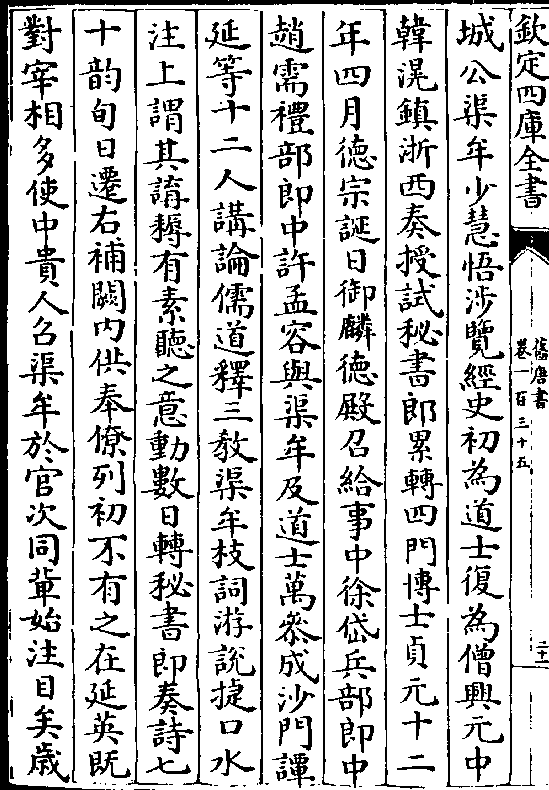 欽定四庫全書
舊唐書
卷一百三十五
二十一
城公渠牟少慧悟涉覽經史初為道士復為僧興元中
韓滉鎮浙西奏授試秘書郎累轉四門博士貞元十二
年四月德宗誕日御麟德殿召給事中徐岱兵部郎中
趙需禮部郎中許孟容與渠牟及道士萬參成沙門譚
延等十二人講論儒道釋三教渠牟枝詞游說捷口水
注上謂其講耨有素聽之意動數日轉秘書郎奏詩七
十韵旬日遷右補闕内供奉僚列初不有之在延英既
對宰相多使中貴人召渠牟於官次同軰始注目矣歳